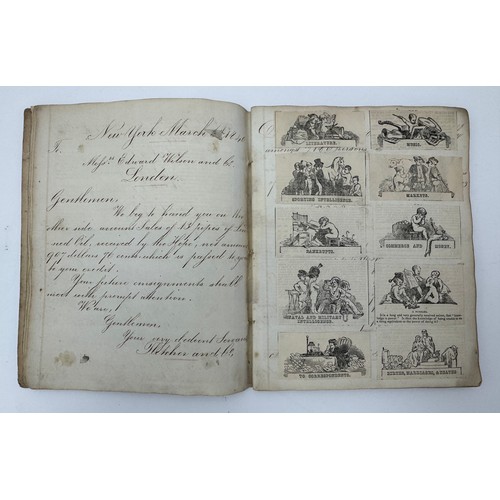 New York March
Messrs Edward Wilson and Co.
London.
Gentlemen,
We beg to hand you on the
other side account Sales of 15 pipes of Lin
seed Oil, received by the Hope, net amount
907 dollars 70 cents which is passed to
to your credit.
Your future consignments shall
meet with prompt attention.
We are,
Gentlemen,
Your very obedient
Fletcher and Co.
LITERATURE.
MUSIC.
SPORTING INTELLIGENCE.
MARKETS.
BANKRUPTS.
COMMERCE AND MONEY.
NAVAL AND MILITARY
INTELLIGENCE.
TO CORRESPONDENTS.
BIRTHS, MARRIAGES, & DEATHS